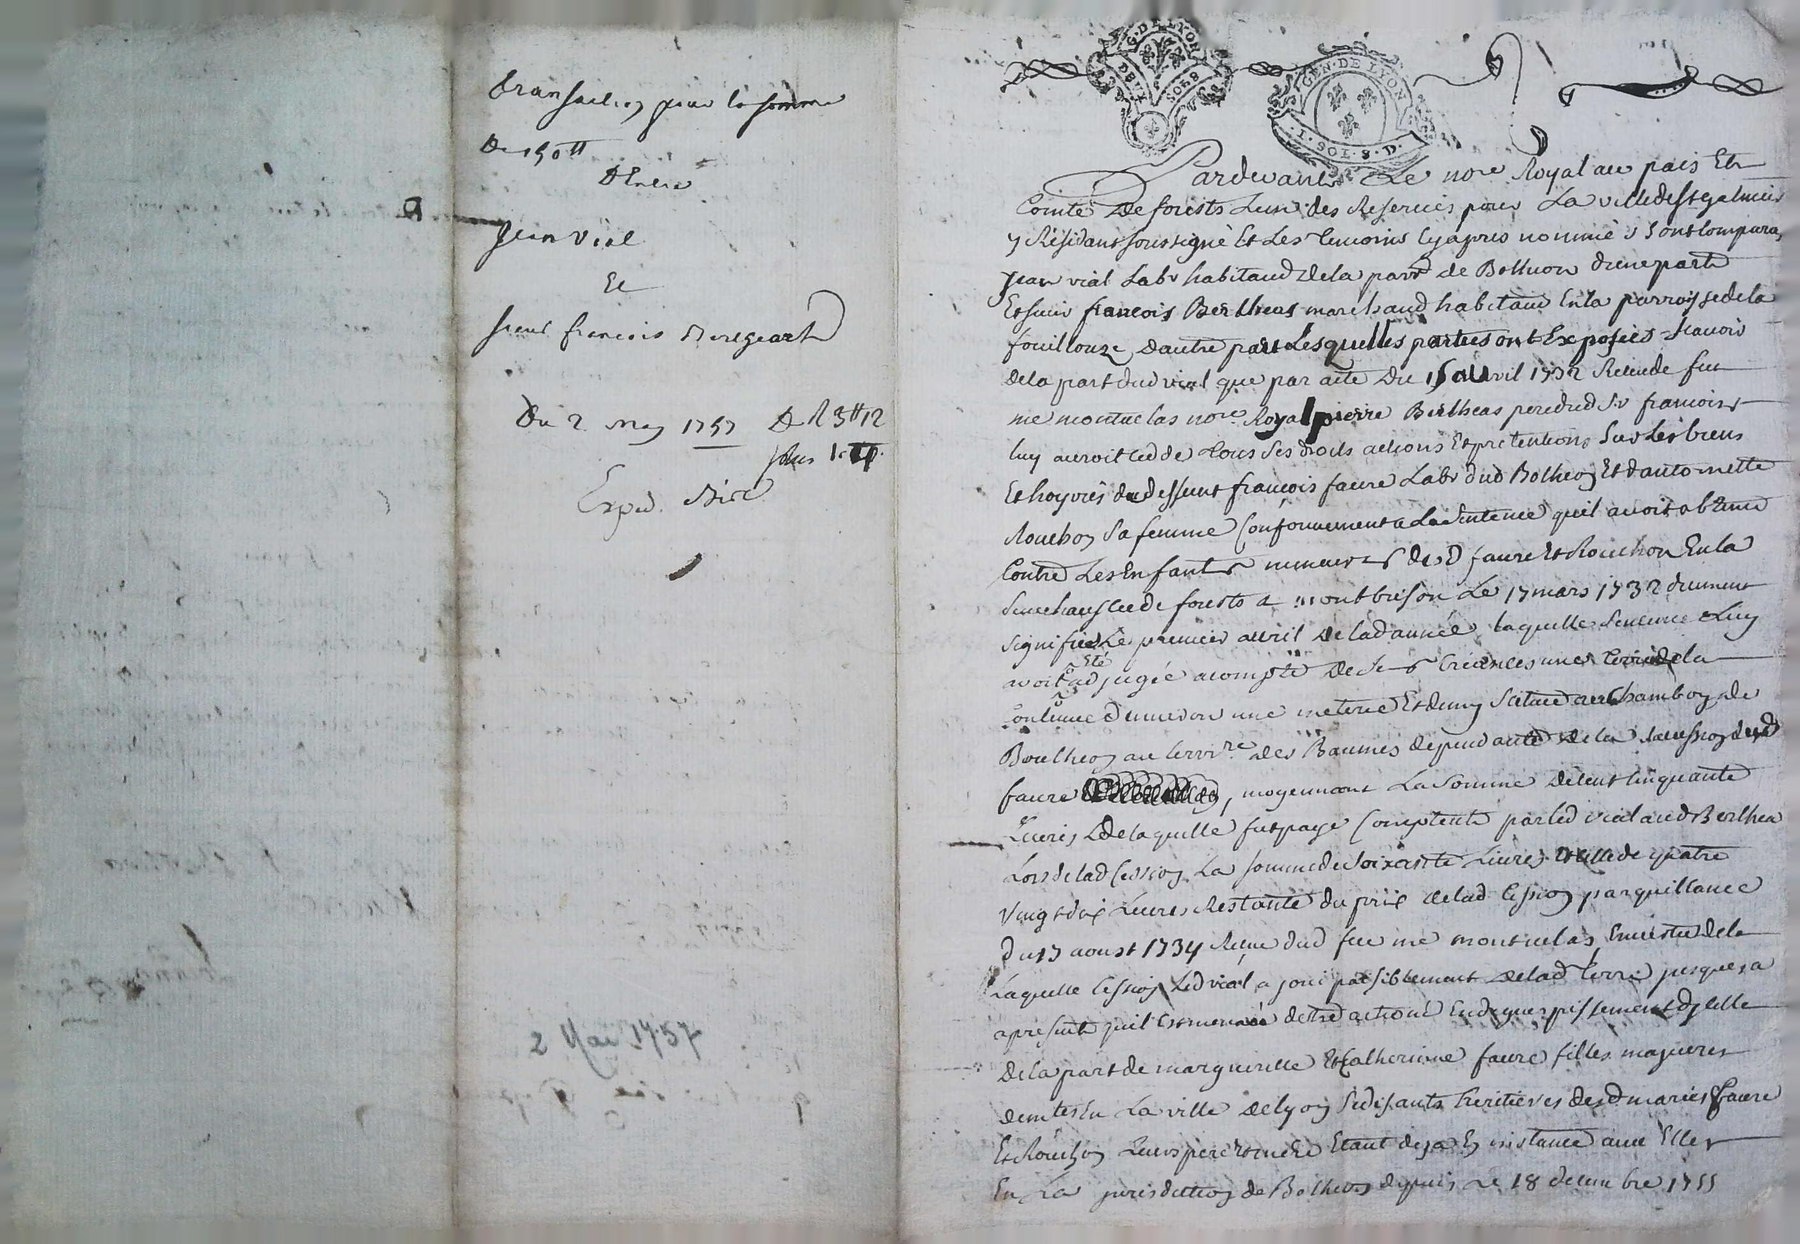 Transaction pour la somme
De 150 ₶
D'Entre
Jean Vial
Et
sieur francois
Du 2 May 1757
Exped.
2 Mai 1757
G. DE LYON
DEUX SOLS
GEN. DE LYON
I. SOL 8. D.
Pardevant Le nore Royal au païs Et
Comté De forests Lun des Reservés pour La ville de St galmier
y Résidant soussigné Et Les temoins cy apres nommés sont comparus
Jean vial Labr habitant de la parr de Bothuon d'une part
Et sieur francois Bertheas marchand habitant En la parroisse de la
fouillouze, d'autre part Lesquelles parties ont Exposées scavoir
de la part dud vial que par acte Du 15 avril 1732 Receu de feu
me montuclas nore Royal pierre Bertheas pere dud Sr francois
luy auroit cedde tous ses droits actions Et pretentions sur Les biens
Et hoyries de deffunt francois faure Labr dud Botheon Et d'antoinette
Rouchon sa femme Conformement a La sentence quil avoit obtenu
Contre Les Enfants mineurs desd faure Et Rouchon En la
Senechaussee de forests a montbrison Le 17 mars 1732 duement
signifiée Le premier avril de lad année, laquelle sentence luy
avoit été adjugée acompte de ses Creances une terre de la
Contenue d'environ une meterée Et demy Scituée au Chambon de
Boutheon au terrre des Baumes dependante de la succession dud
faure, moyennant La somme de cent cinquante
Livres de laquelle fut payé Comptent par led vial aud Berthea
Lors de lad Cession La somme de soixante Livres Et celle de quatre
vingt dix Livres Restante du prix de lad Cession par quittance
du 17 aoust 1734 Receue dud feu me montuclas, En vertu de la
Laquelle Cession led vial a joui paisiblement de lad terre jusques a
apresent quil Est menacé d'etre actioné En deguerpissement d'ycelle
de la part de margueritte Et Catherinne faure filles majeures
demtes En La ville de Lyon se disants heritieres desd mariés faure
Et Rouchon Leurs pere Et mere Etant deja En instance avec Elles
En La jurisdiction de Botheon depuis Le 18 decembre 1755